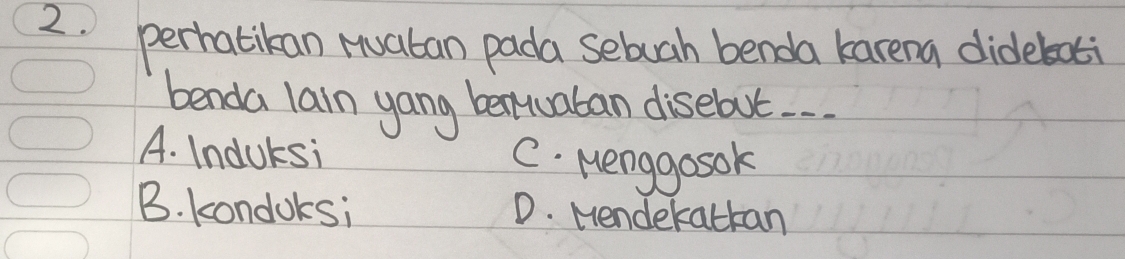 2. perhatikan Muatan pada sebuah benda karena didekati
benda lain yang bermuatan disebut ---
A. Induksi C. Menggosok
B. konduksi D. Mendekatkan